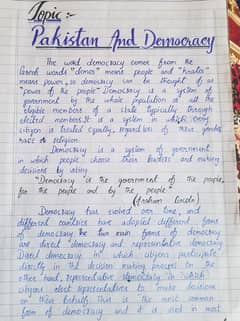 Topic:-
Pakistan And Democracy
The word democracy comes from the
Greek words "demos" means people and "kratos"
means power, so democracy can be thought of as
"power of the people". Democracy is a system of
government by the whole population or all the
eligible members of a state typically through
elected members. It is a system in which every
citizen is treated equally, regardless of their gender,
race or religion.
Democracy is a system of government
in which people choose their leaders and making
decisions by voting.
"Democracy is the government of the people,
for the people and by the people"
(Abraham Lincoln)
Democracy has evolved over time, and
different countries have adopted different forms
of democracy. The two main forms of democracy
are direct democracy and representative democracy
Direct democracy in which citizens participate
directly in the decision making process on the
other hand representative democracy in which
citizens elect representatives to make decisions
on their behalf. This is the most common
form of democracy and it is used in most